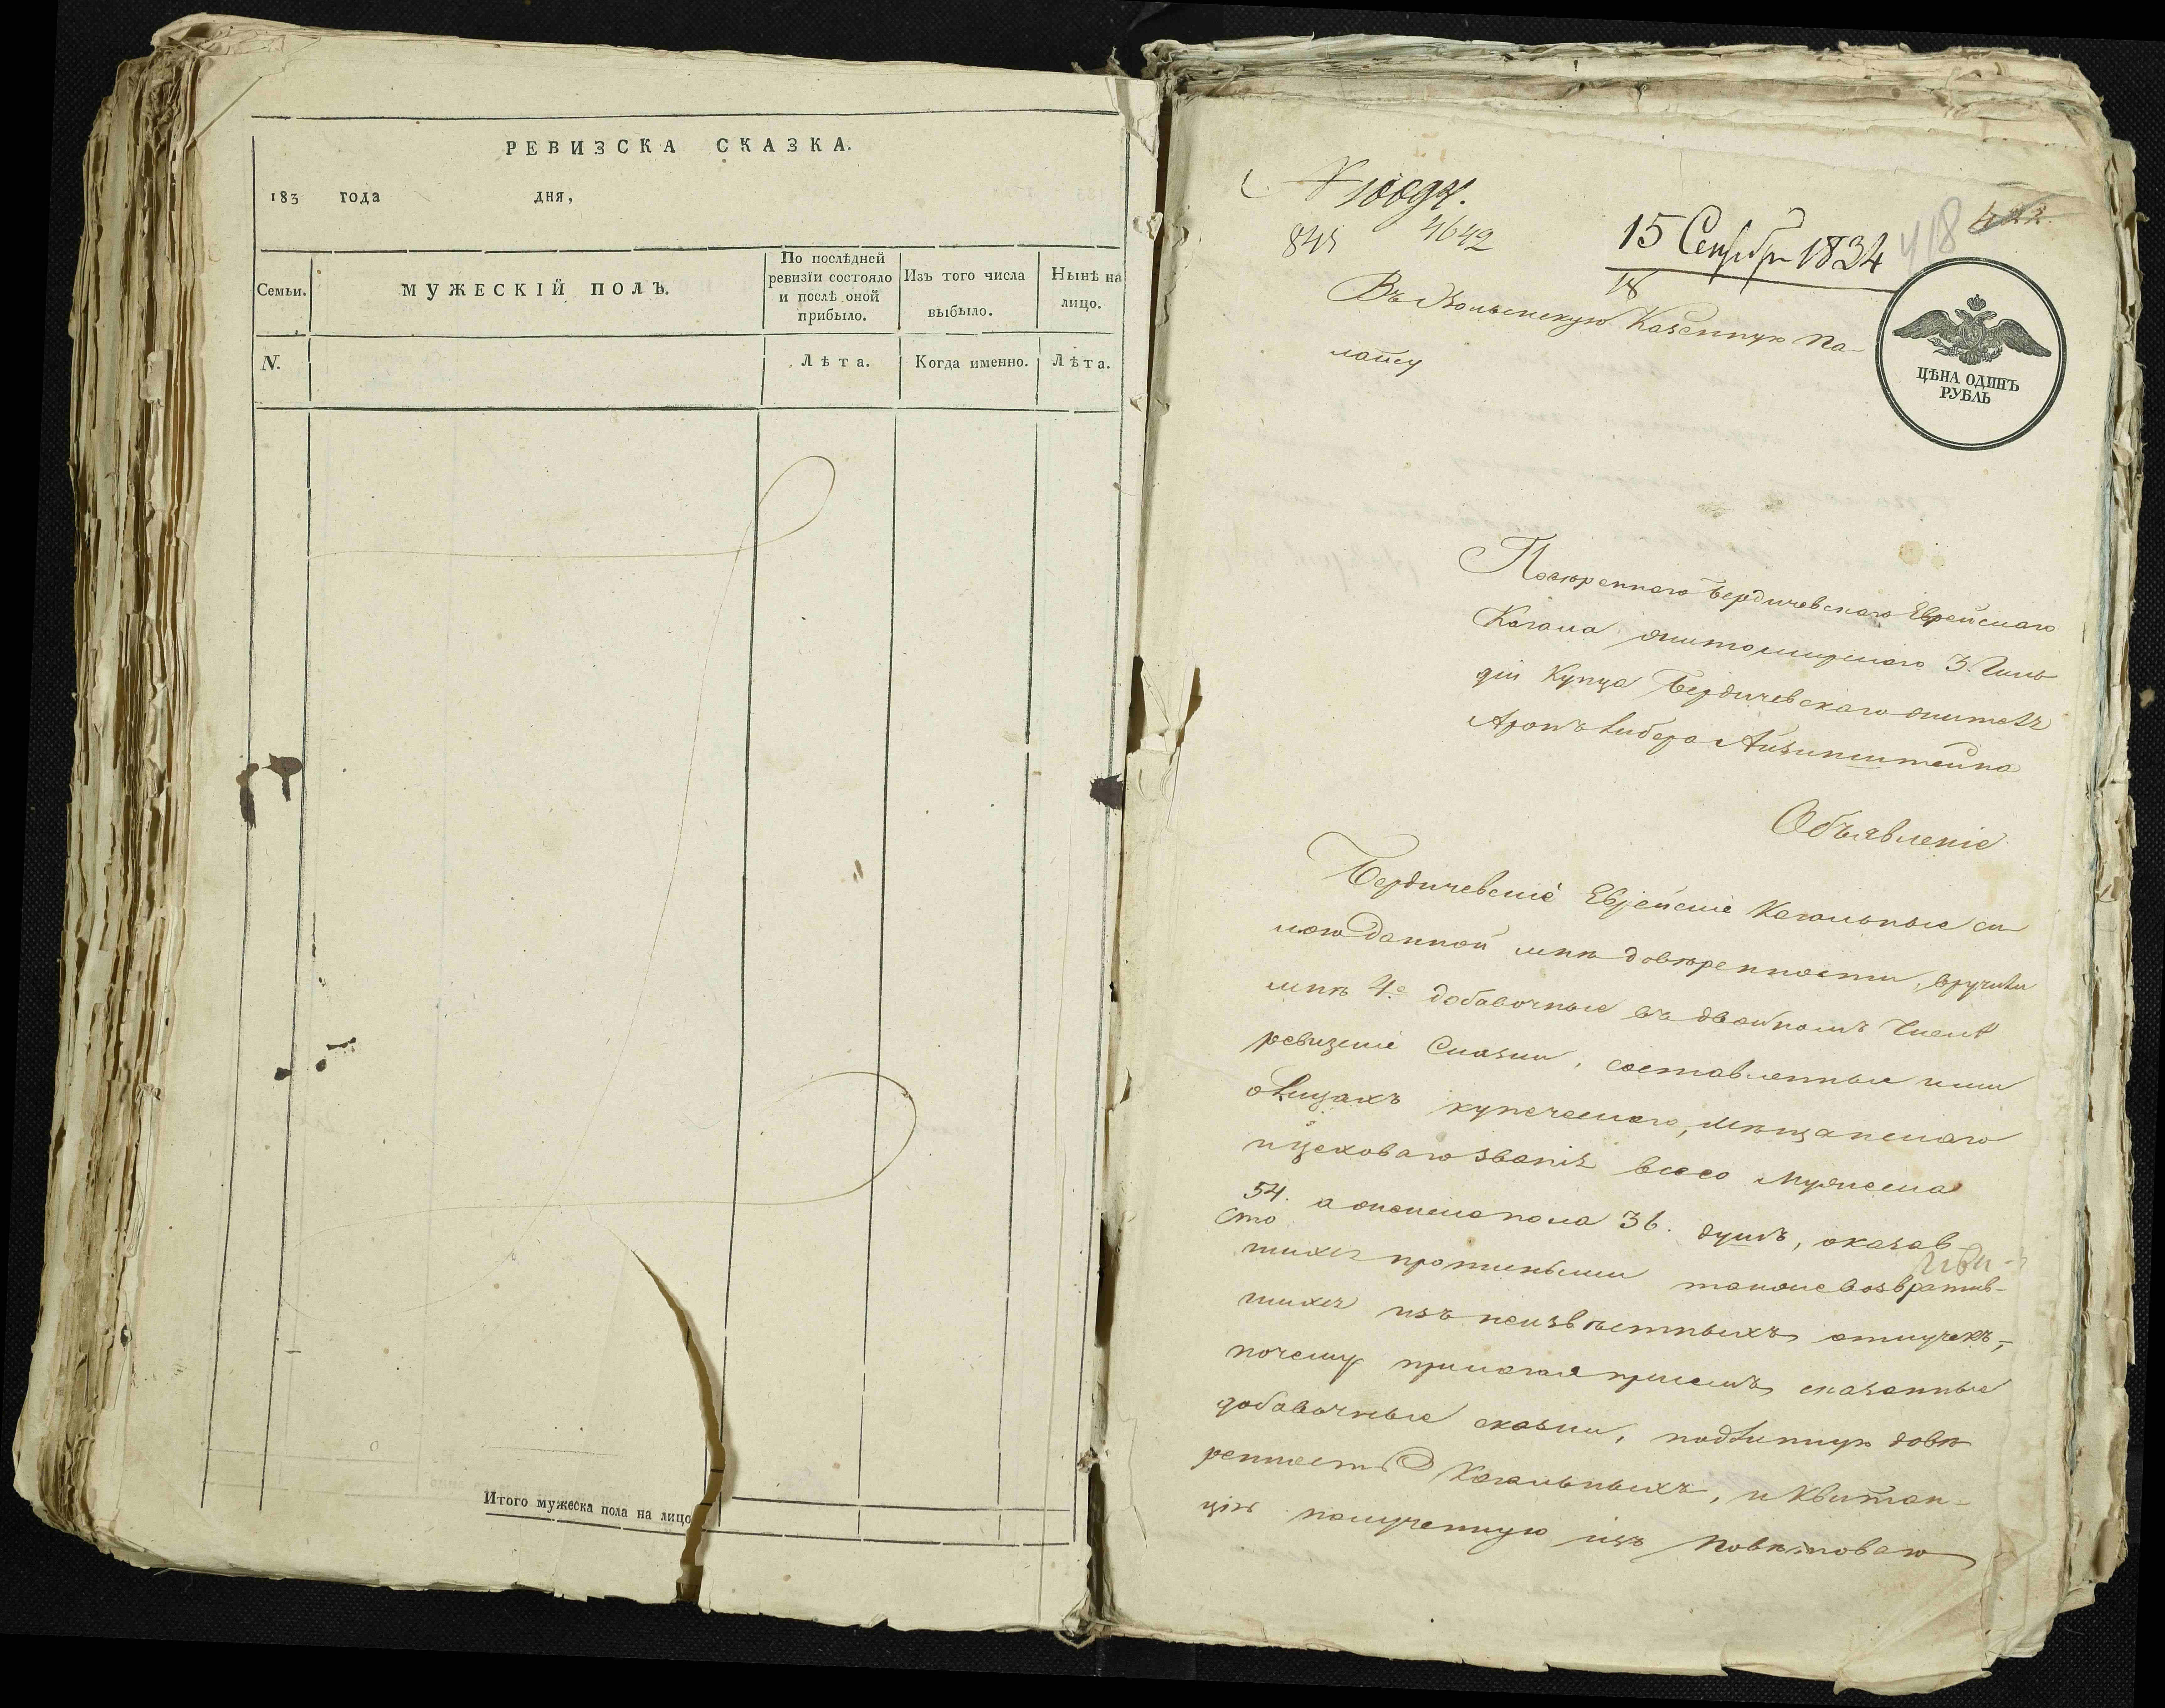 РЕВИЗСКА СКАЗКА.
183 года дня,
Семьи.
МУЖЕСКІЙ ПОЛЪ.
По послѣдней
ревизіи состояло
и послѣ оной
прибыло.
Изъ того числа
выбыло.
Нынѣ на
лицо.
N.
Лѣта.
Когда именно.
Лѣта.
Итого мужеска пола на лицо
845 4642
15 1834
418
422.
18
Въ Волынскую Казенную Па-
лату
ЦѢНА ОДИНЪ
РУБЛЬ
Повѣреннаго Бердичевскаго Еврейскаго
Кагала житомирскаго 3. Гиль
діи Купца Бердичевскаго
Аронъ Либера
Объявленіе
Бердичевскіе Еврейскіе Кагальные си
лою данной мнѣ довѣренности, вручили
мнѣ 4.е добавочные въ двойномъ Числѣ
ревизскіе Сказки, составленные ими
о Лицахъ купеческаго, мѣщанскаго
и цеховаго званія всего мужеска
54. а женска пола 36. душъ, оказав
шихся прописными также возврατив-
шихся изъ неизвѣстныхъ отлучекъ,
почему прилагая присемъ сказанные
добавочные сказки, подлинную довѣ
ренность Кагальныхъ, и Квитан-
цію полученную изъ Повѣтоваго